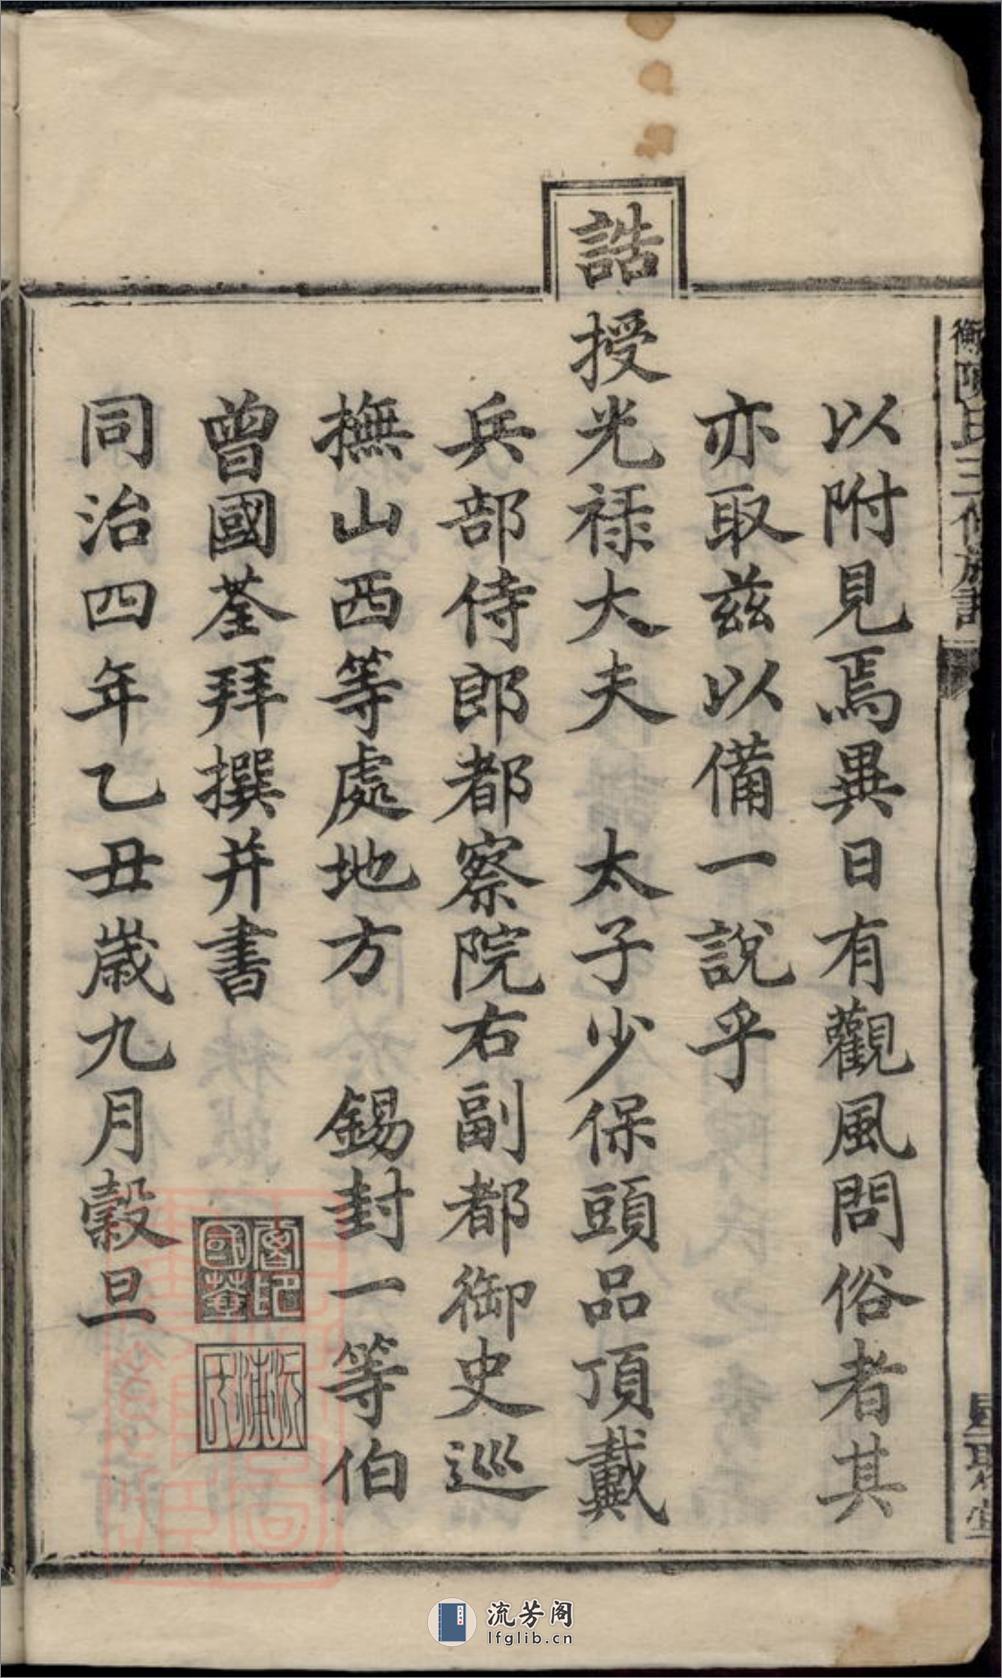 以附見焉異日有觀風問俗者其
亦取兹以備一說乎
誥授光祿大夫 太子少保頭品頂戴
兵部侍郎都察院右副都御史巡
撫山西等處地方 錫封一等伯
曾國荃拜撰并書
同治四年乙丑歲九月穀旦
國荃
沅浦氏
衡陽氏三修族譜
星聚堂
流芳阁
lfglib.cn